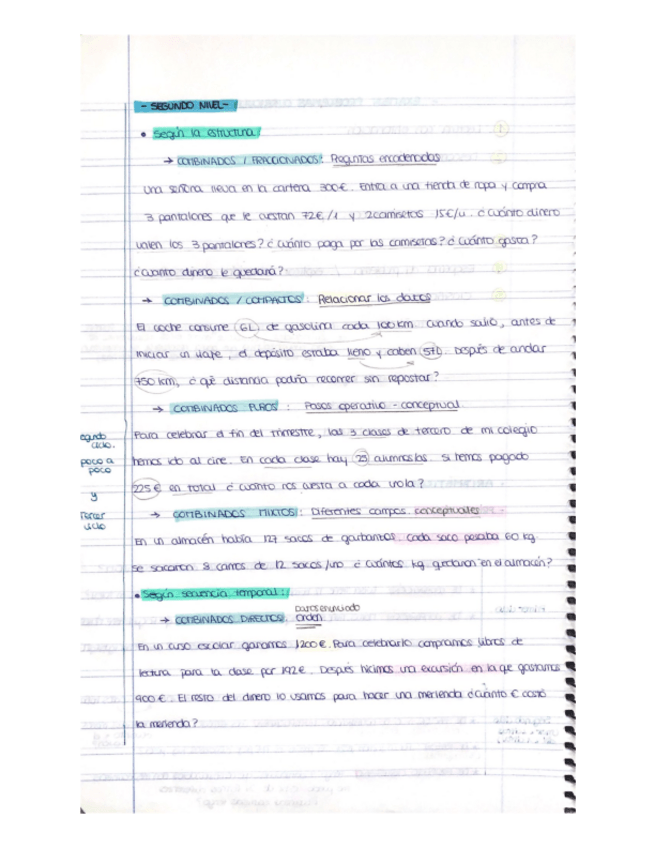 - SEGUNDO NIVEL -
• Según la estructura
→ COMBINADOS / FRACCIONADOS: Preguntas encadenadas
Una señora lleva en la cartera 300€. Entra a una tienda de ropa y compra
3 pantalones que le cuestan 72€/1 y 2 camisetas 15€/u. ¿Cuánto dinero
valen los 3 pantalones? ¿Cuánto paga por las camisetas? ¿Cuánto gasta?
¿Cuánto dinero le quedará?
→ COMBINADOS / COMPACTOS: Relacionar los datos
El coche consume 6L de gasolina cada 100km. Cuando salió, antes de
iniciar un viaje, el depósito estaba lleno y caben 57L. Después de andar
750 km, ¿qué distancia podría recorrer sin repostar?
→ COMBINADOS PUROS: Pasos operativo - conceptual.
Para celebrar el fin del trimestre, las 3 clases de tercero de mi colegio
hemos ido al cine. En cada clase hay 25 alumnos/as. Si hemos pagado
225€ en total ¿cuánto nos cuesta a cada uno/a?
egundo
ciclo.
poco a
poco
y
Tercer
ciclo
→ COMBINADOS MIXTOS: Diferentes campos conceptuales
En un almacén había 127 sacos de garbanzos. Cada saco pesaba 60 kg.
se sacaron 8 carros de 12 sacos/uno ¿Cuántos kg quedaron en el almacén?
• Según secuencia temporal:
→ COMBINADOS DIRECTOS: datos enunciado orden
En un curso escolar ganamos 1200€. Para celebrarlo compramos libros de
lectura para la clase por 192€. Después hicimos una excursión en la que gastamos
900€. El resto del dinero lo usamos para hacer una merienda ¿Cuánto € costó
la merienda?